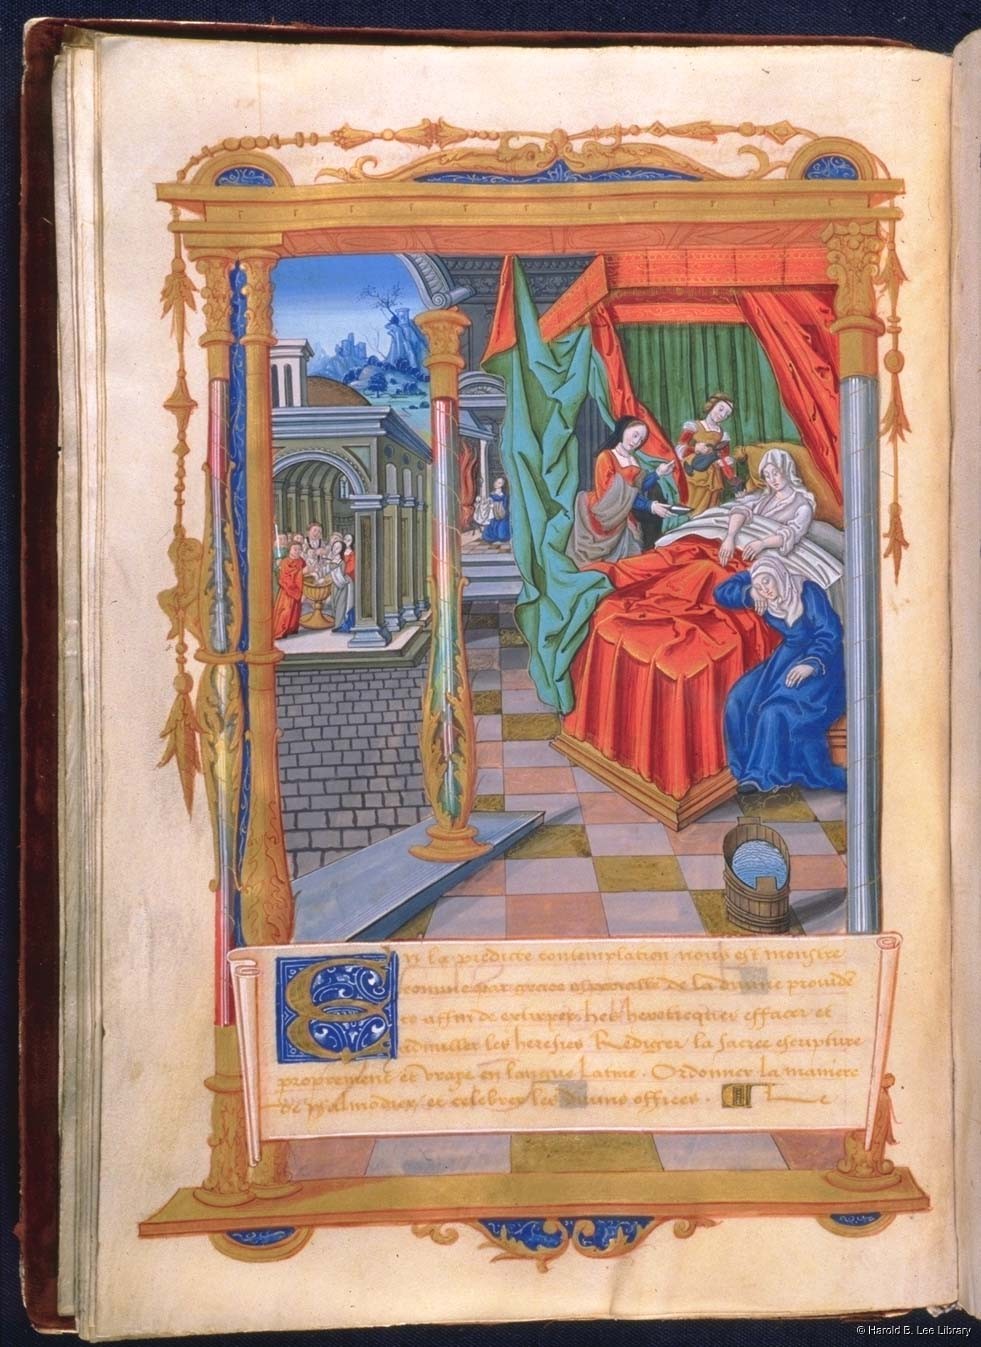 En la predicte contemplation nous est monstre
comme par grace especialle de la divine providẽ
ce affin de extirper les hereticques effacer et
adnuller les heresies Rediger la sacree escripture
proprement et vraye en langue latine . Ordonner la maniere
de psalmodier et celebrer les divins offices .
© Harold B. Lee Library